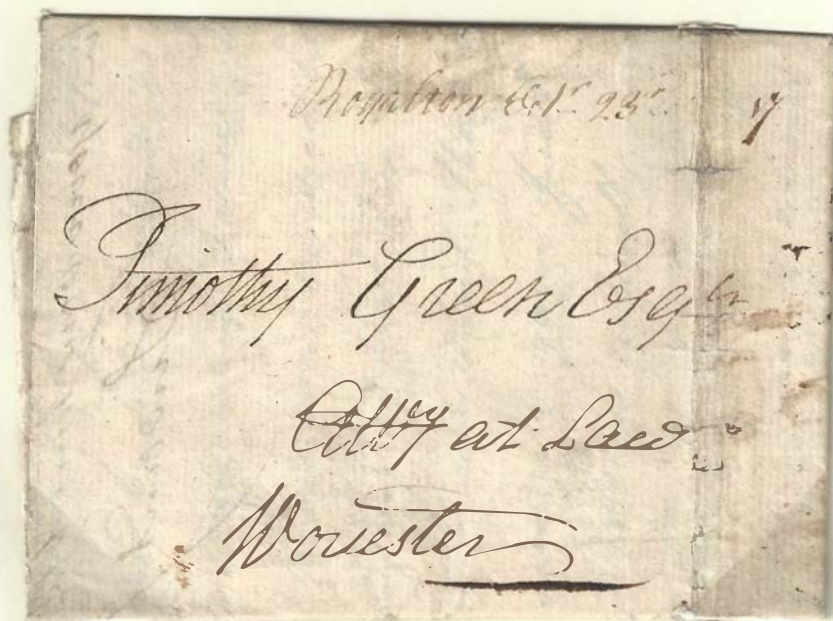 Royalton 23d 17
Timothy Green Esqr
Atty at Law
Worcester